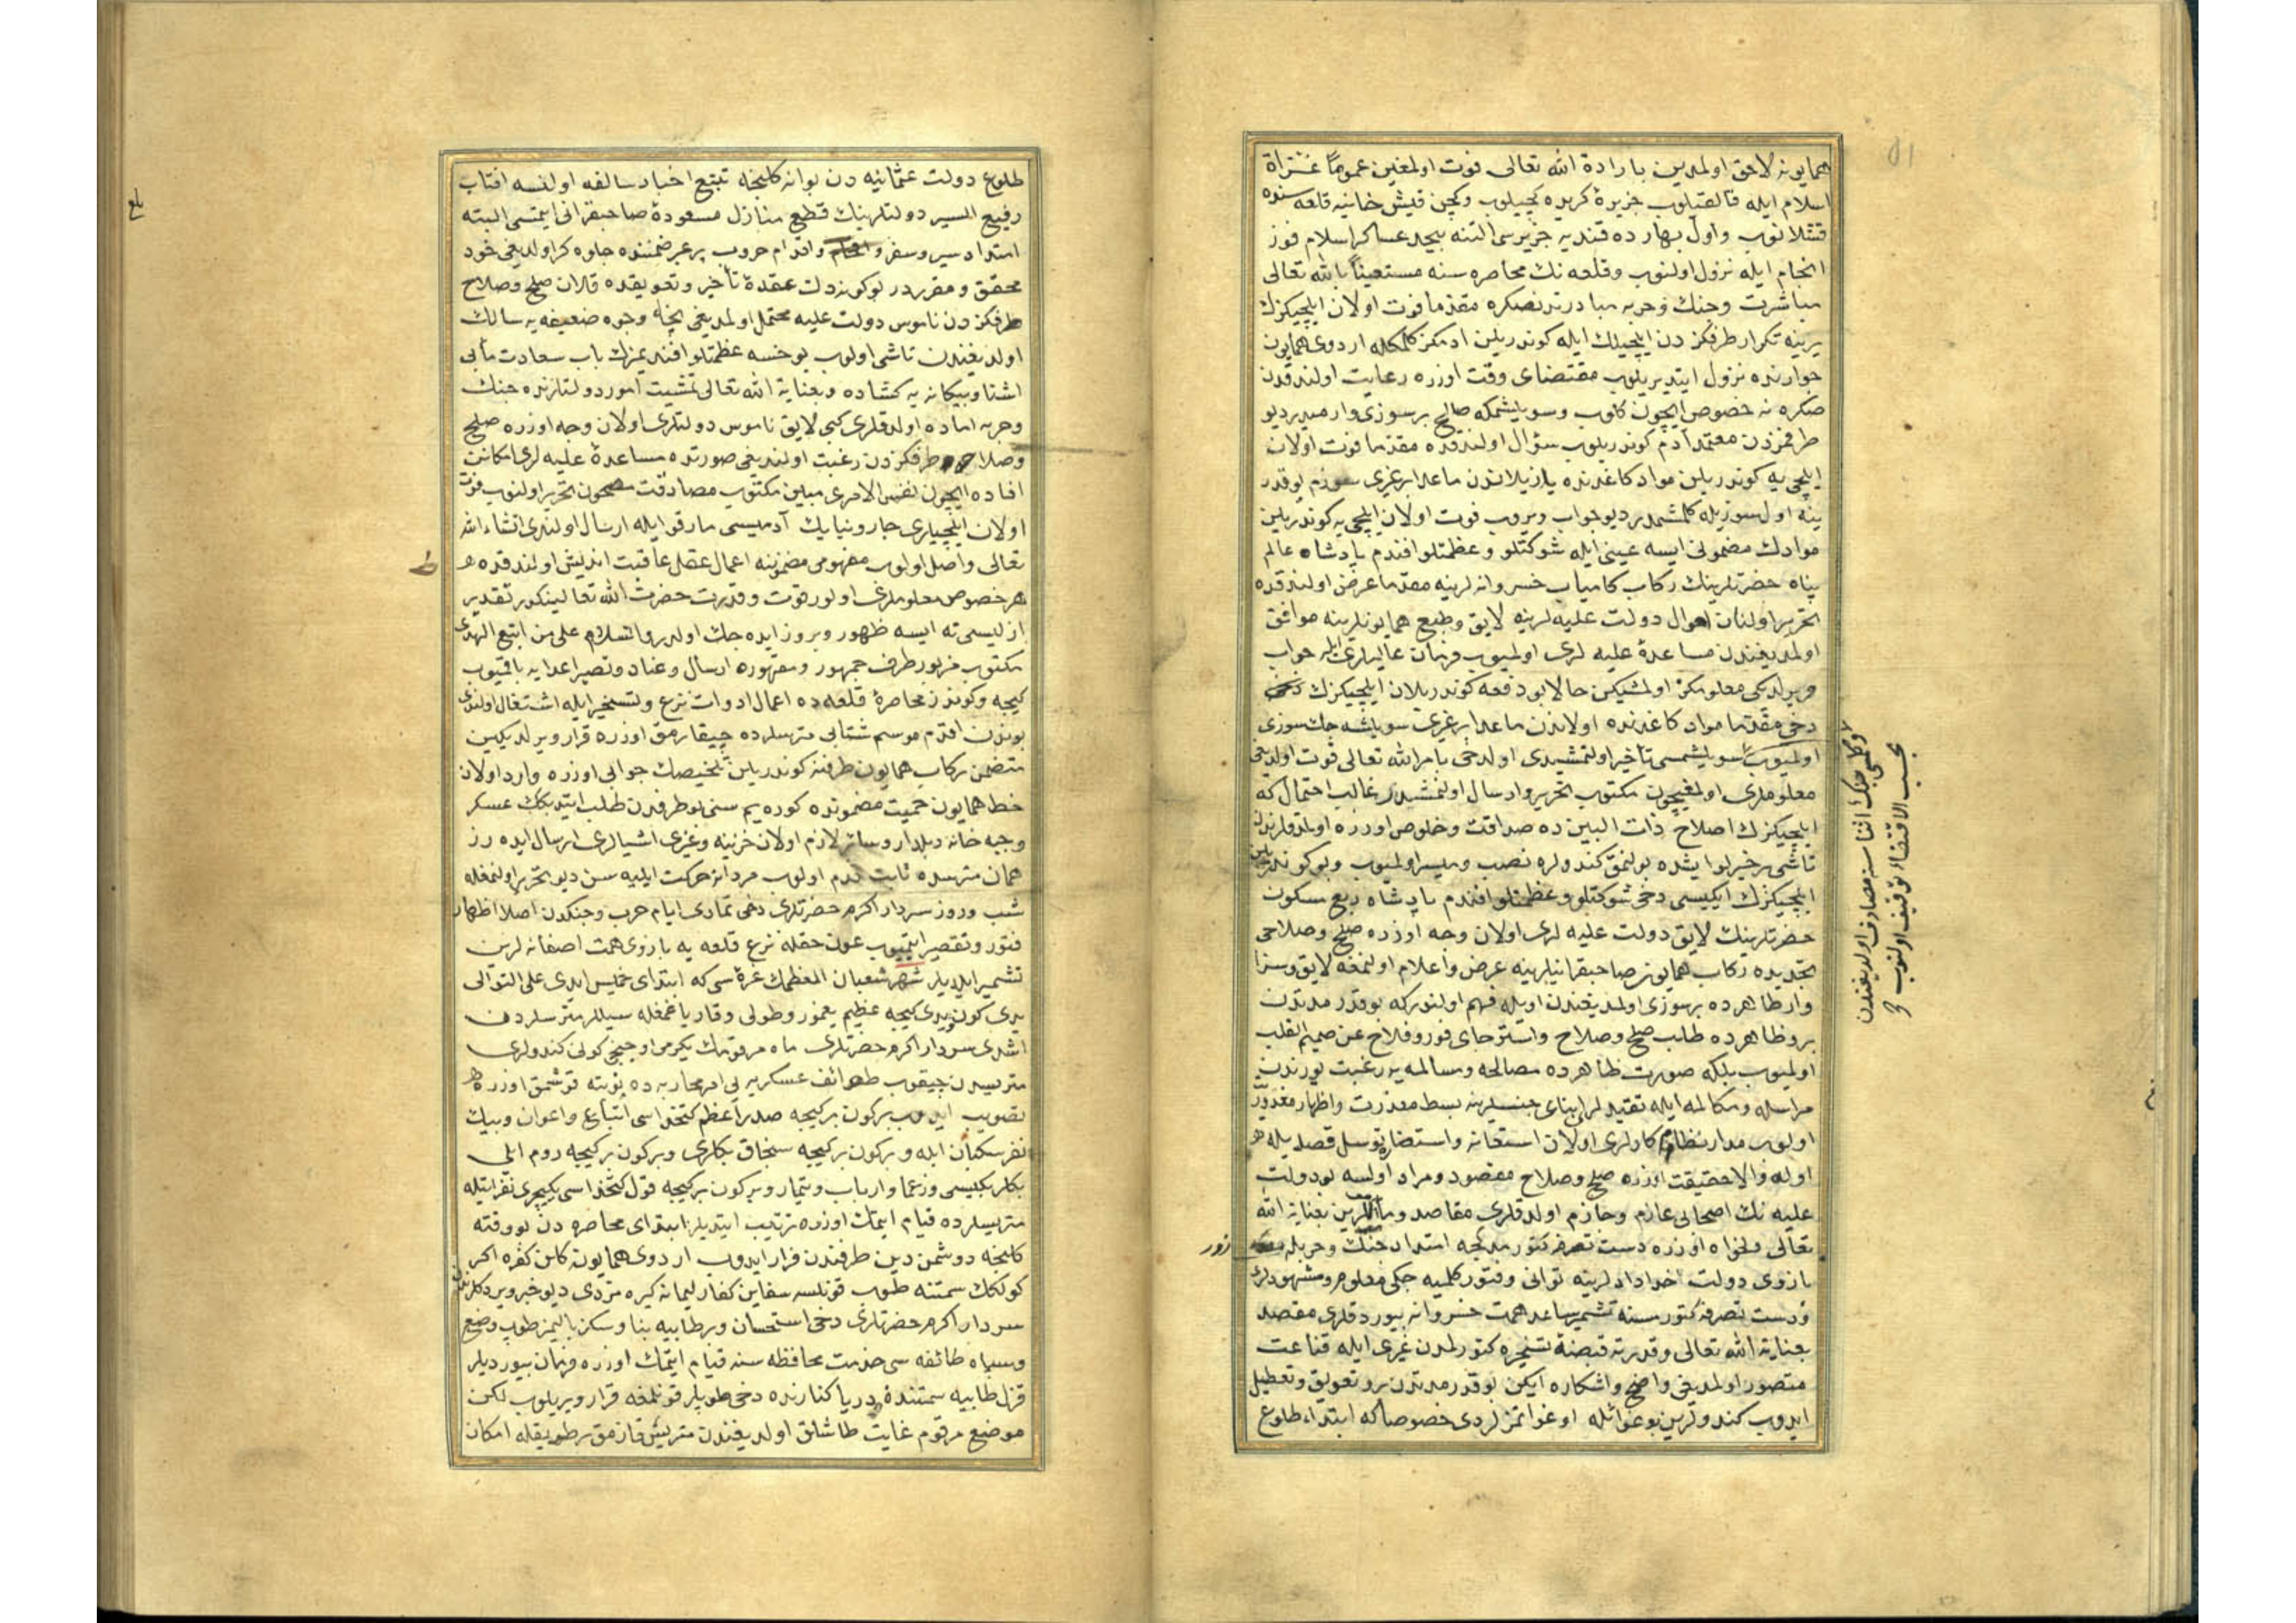 همایونه لاحق اولمدین بارادة الله تعالی فوت اولمغین عموماً غزاة
اسلام ایله قالقیلوب جزیرۀ کریده کچیلوب وکچن قیش خانیه قلعه سنده
قشلانوب واول بهارده قندیه جزیره سی التنه بیحد عساکر اسلام فوز
انجام ایله نزول اولنوب وقلعه نك محاصره سنه مستعیناً بالله تعالی
مباشرت وجنك وحربه مبادرتدنصکره مقدما فوت اولان ایلچیکزك
یرینه تکرار طرفکزدن ایلچیلك ایله کوندریلن ادمکز کلمکله اردوی همایون
جوارنده نزول ایتدیریلوب مقتضای وقت اوزره رعایت اولندقدن
صکره نه خصوص ایچون کلوب وسویلشمکه صالح بر سوزی وارمیدر دیو
طرفمزدن معتمد آدم کوندریلوب سؤال اولندقده مقدما فوت اولان
ایلچی یه کوندریلن مواد کاغدنده یازیلاندن ماعدا بر غیری سوزم یوقدر
ینه اول سوزیله کلمشمدر دیو جواب ویروب فوت اولان ایلچی یه کوندریلن
موادك مضمونی ایسه عینی ایله شوکتلو وعظمتلو افندم پادشاه عالم
پناه حضرتلرینك رکاب کامیاب خسروانه لرینه مقدما عرض اولندقده
تحریر اولنان احوال دولت علیه لرینه لایق وطبع همایونلرینه موافق
اولمدیغندن مساعدۀ علیه لری اولمیوب فرمان عالیلری ایله جواب
ویریلدیکی معلومکز اولمشیکن حالا بو دفعه کوندریلان ایلچیکزك
دخی مقدما مواد کاغدنده اولاندن ماعدا بر غیری سویلشه جك سوزی
اولمیوب سویلشمسی تأخیر اولنمشیدی اولدخی بامرالله تعالی فوت اولدیغی
معلوملری اولمغیچون مکتوب تحریر وارسال اولنمشدر غالب احتمال که
ایلچیکزك اصلاح ذات البین ده صداقت وخلوص اوزره اولمدقلرندن
ناشی بر خیرلو ایشده بولنمق کندولره نصب ومیسر اولمیوب وبو کوندریلن
ایلچیکزك ایکیسی دخی شوکتلو وعظمتلو افندم پادشاه ربع مسکون
حضرتلرینك لایق دولت علیه لری اولان وجه اوزره صلح وصلاحی
تجدیده رکاب همایون صاحبقرانیلرینه عرض واعلام اولنمغه لایق وسزا
وار ظاهرده بر سوزی اولمدیغندن اویله فهم اولنور که بو قدر مدتدن
برو ظاهرده طلب صلح وصلاح واسترجای فوز وفلاح عن صمیم القلب
اولمیوب بلکه صورت ظاهرده مصالحه ومسالمه یه رغبت یوزندن
مراسله ومکالمه ایله تقیدلری ابنای جنسلرینه بسط معذرت واظهار
اولوب مدار نظام کارلری اولان استعانه واستضار توسل قصدیله
اوله والا حقیقت اوزره صلح وصلاح مقصود ومراد اولسه بو دولت
علیه نك اصحابی عازم وجازم اولدقلری مقاصد ومآللرین بعنایة الله
تعالی دلخواه اوزره دست تصرفه کتورمدکجه امتداد جنك وحربله
بازوی دولت خداداد لرینه توانی وفتور کلمیه جکی معلوم ومشهودلری
ودست تصرفه کتورمسنه تشمیر ساعد همت خسروانه بیوردقلری مقصد
بعنایة الله تعالی وقدرته قبضۀ تسخیره کتورلمدن غیری ایله قناعت
متصور اولمدیغی واضح واشکاره ایکن بو قدر مدتدن برو تعویق وتعطیل
ایدوب کندولرین بو غوائله اوغراتمزلردی خصوصا که ابتداء طلوع
وکلمسی جنك اثناسنه مصادف اولدیغندن
بحسب الاقتضاء توقیف اولنوب
زور
طلوع دولت عثمانیه دن بو انه کلنجه تتبع اخبار سالفه اولنسه افتاب
رفیع السیر دولتلرینك قطع منازل مسعودۀ صاحبقرانی ایتمسی البته
امتداد سیر وسفر واقدام حروب پر عبر ضمننده جلوه کر اولدیغی خود
محقق ومقرردر بو کونه دك عقدۀ تأخیر وتعویقده قلان صلح وصلاح
طرفکزدن ناموس دولت علیه محتمل اولمدیغی وجوه ضعیفه یه سالك
اولدیغندن ناشی اولوب یوخسه عظمتلو افندیمزك باب سعادت مآبی
اشنا وبیکانه یه کشاده وبعنایة الله تعالی تمشیت امور دولتلرنده جنك
وحربه اماده اولدقلری کبی لایق ناموس دولتلری اولان وجه اوزره صلح
وصلاحه طرفکزدن رغبت اولندیغی صورتده مساعدۀ علیه لری امکانن
افاده ایچون نفس الامری مبین مکتوب مصادقت مشحون تحریر اولنوب فوت
اولان ایلچیلری جاروینیانك آدمیسی مارقو ایله ارسال اولندی انشاءالله
تعالی واصل اولوب مفهومی مضموننه اعمال عقل عاقبت اندیش اولندقده
هر خصوص معلوملری اولور قوت وقدرت حضرت الله تعالینکدر تقدیر
ازلیسی نه ایسه ظهور وبروز ایده جك اولدر والسلام علی من اتبع الهدی
مکتوب مزبور طرف جمهور ومقهوره ارسال وعناد وتصیر اعدایه باقمیوب
کیجه وکوندز محاصرۀ قلعه ده اعمال ادوات نزع وتسخیر ایله اشتغال اولندی
بوندن اقدم موسم شتایی مترسلرده چیقارمق اوزره قرار ویرلدیکین
متضمن رکاب همایون طرفنه کوندریلن تلخیصك جوابی اوزره وارد اولان
خط همایون حمیت مضموننده کوره یم سنی بو طرفدن طلب ایتدیکك عسکر
وجبه خانه وبلدار وسائر لازم اولان خزینه وغیری اشیالری ارسال ایده رز
همان مترسده ثابت قدم اولوب مردانه حرکت ایلیه سن دیو تحریر اولنمغله
شب وروز سردار اکرم حضرتلری دخی تمادی ایام حرب وجنکدن اصلا اظهار
فتور وتقصیر ایتمیوب عون حقله نزع قلعه یه بازوی همت اصفانه لرین
تشمیر ایلدیلر شهر شعبان المعظمك غره سی که ابتدای خمیس ایدی علی التوالی
یدی کون ویدی کیجه عظیم یغمور وطولی وقار یاغمغله سیللر مترسلردن
اشدی سردار اکرم حضرتلری ماه مرقومك یکرمی اوچنجی کونی کندولری
مترسدن چیقوب طوائف عسکریه یی امر محاربه ده نوبته قوشمق اوزره
تصویب ایدوب بر کون بر کیجه صدر اعظم کتخداسی اتباع واعوان وبیك
نفر سکبان ایله وبر کون بر کیجه سنجاق بکلری وبر کون بر کیجه روم ایلی
بکلربکیسی وزعما وارباب وتیمار وبر کون بر کیجه قول کتخداسی یکیچری نفراتیله
مترسلرده قیام ایتمك اوزره ترتیب ایتدیلر ابتدای محاصره دن بو وقته
کلنجه دوشمن دین طرفندن فرار ایدوب اردوی همایون کلن کفره اکر
کوللك سمتنه طوب قونلسه سفاین کفار لیمانه کیره مزدی دیو خبر ویردکلرندن
سردار اکرم حضرتلری دخی استحسان وبر طابیه بنا وسکز بالیمز طوب وضع
وسپاه طائفه سی خدمت محافظه سنه قیام ایتمك اوزره فرمان بیوردیلر
قزل طابیه سمتنده دریا کنارنده دخی طوپلر قونلمغه قرار ویریلوب لکن
موضع مرقوم غایت طاشلق اولدیغندن متریس قازمق بر طریقله امکان
بلغ
ط